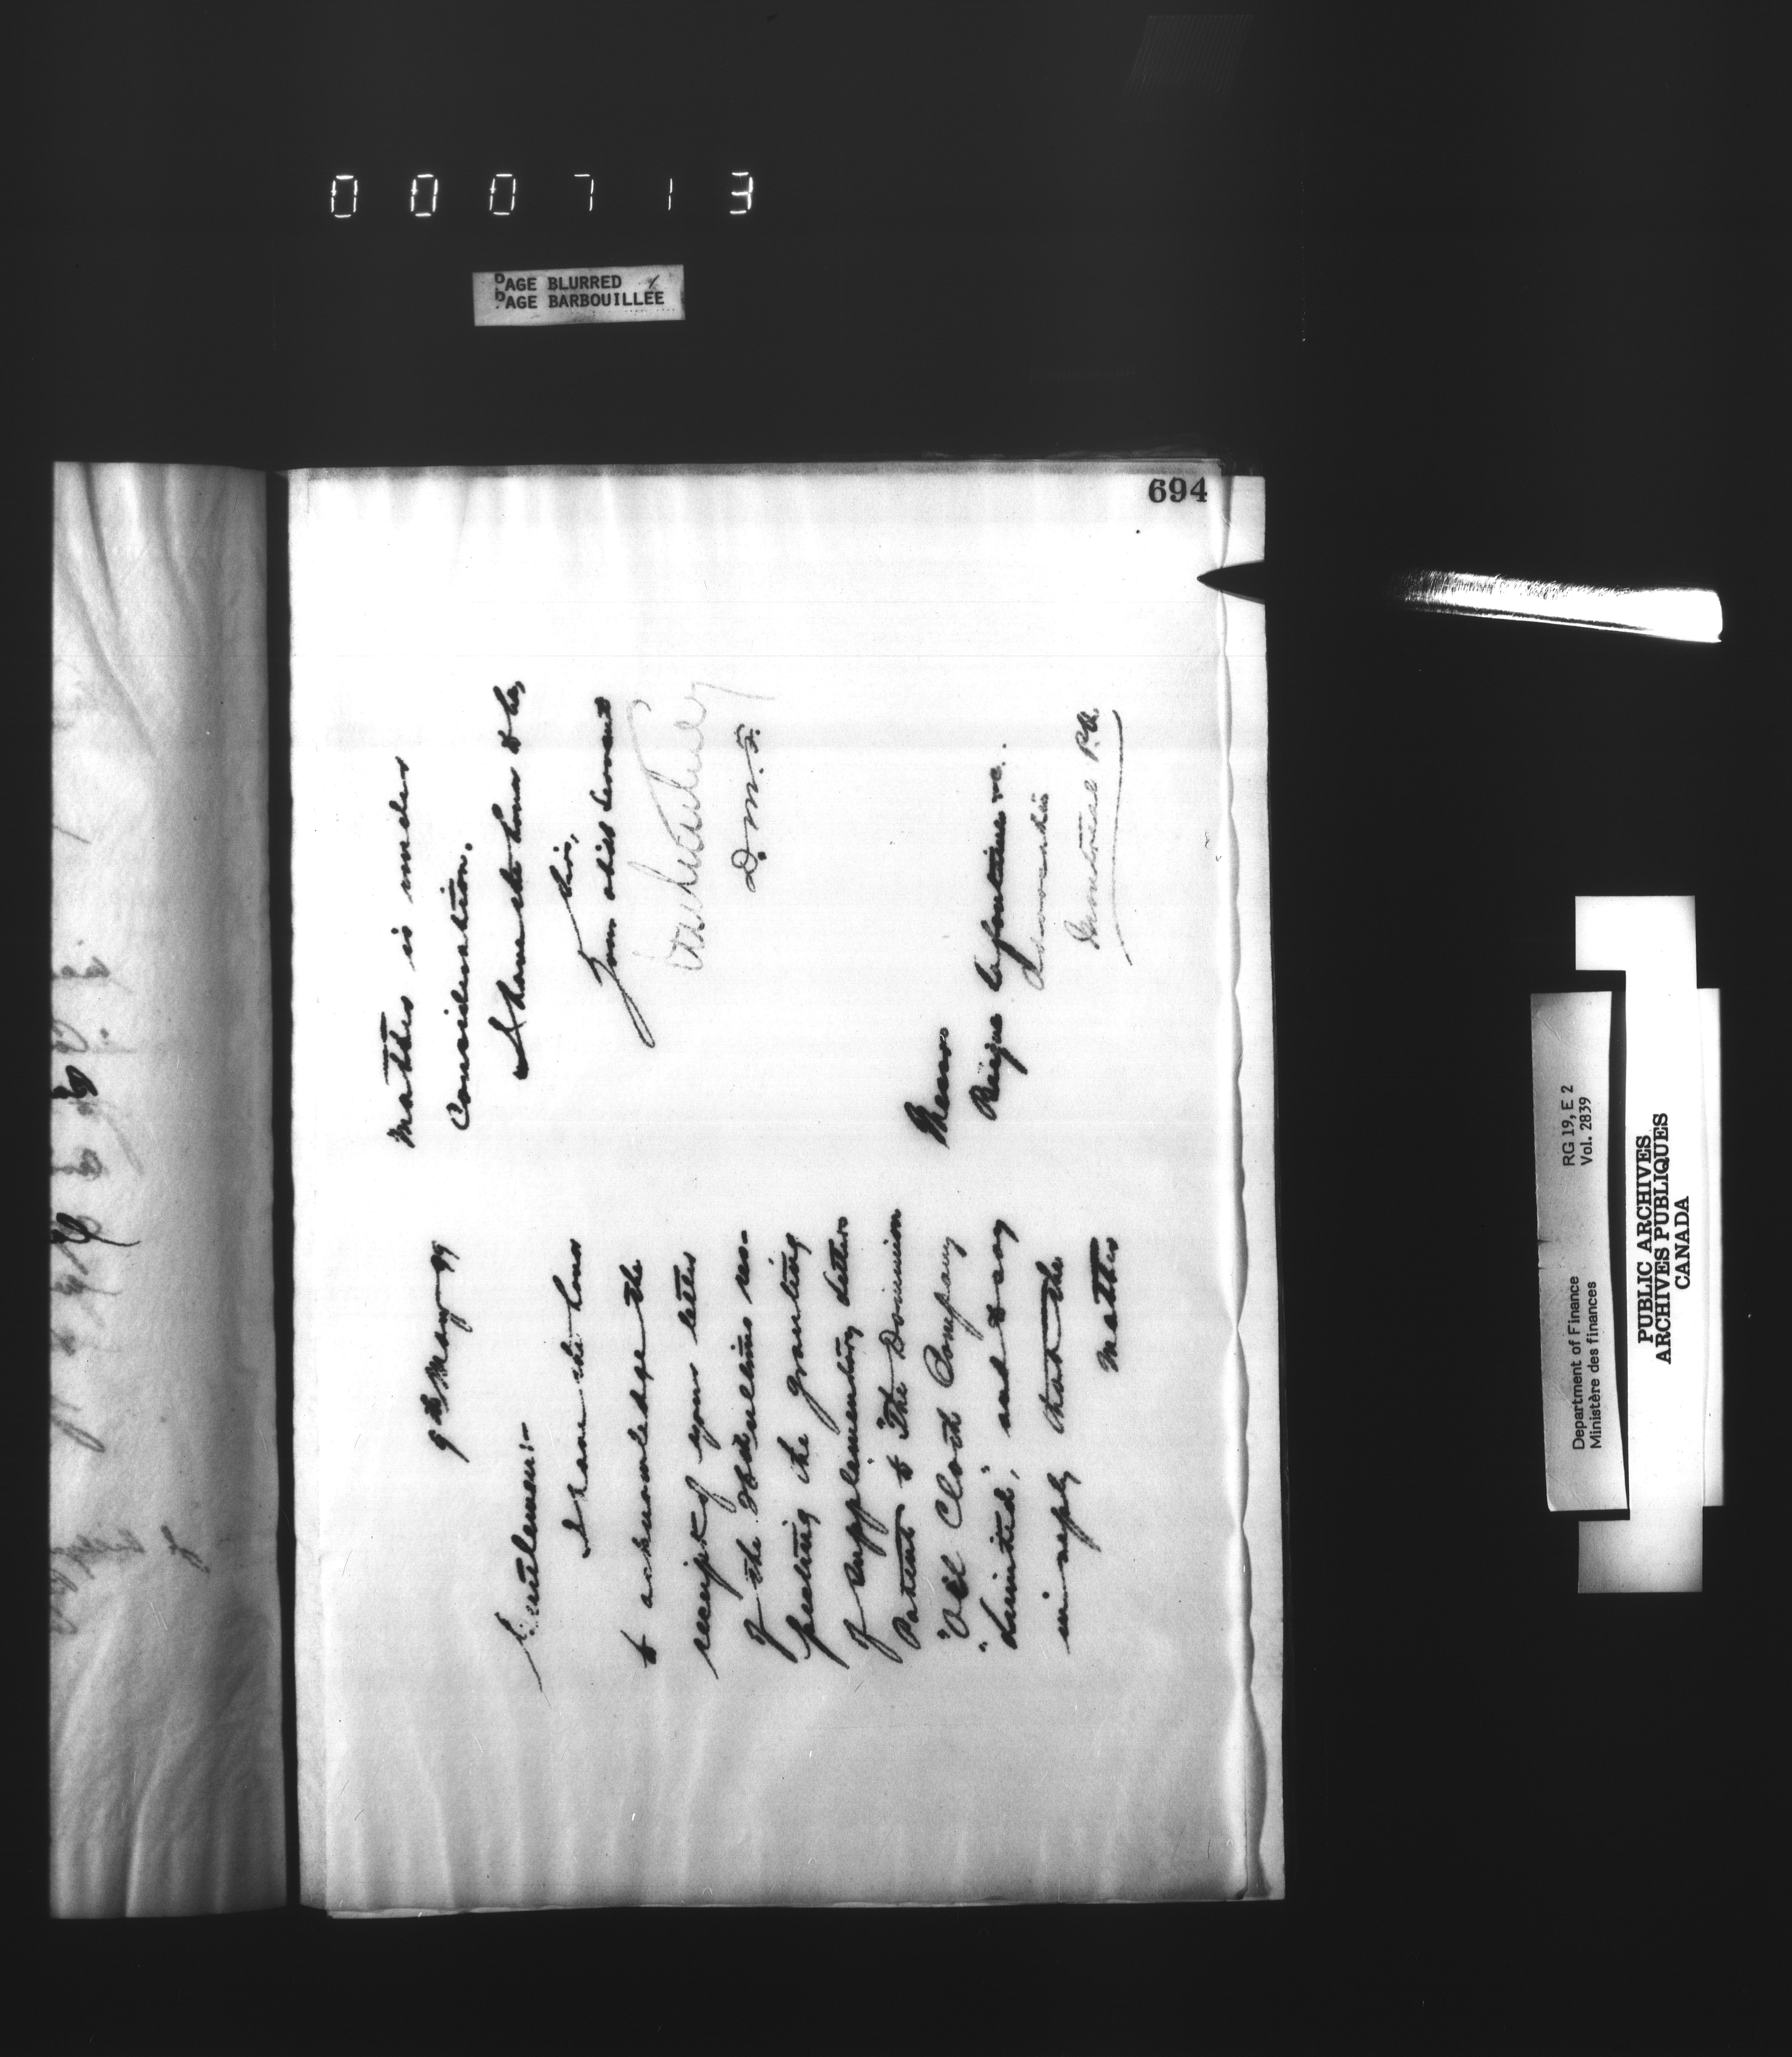 000713
PAGE BLURRED
PAGE BARBOUILLEE
694
9th May 99
Gentlemen:-
I have the honor
to acknowledge the
receipt of your letter
of the ultimo res-
pecting the granting
of supplementary letters
Patent to "The Dominion
"Oil Cloth Company
"Limited", and to say
in reply that the
matter
matter is under
consideration.
I have the honor to be,
Sirs,
Your obdt servant
D.M.F.
Messrs
Beique Lafontaine
Advocates
Montreal P.Q.
Department of Finance RG 19, E 2
Ministère des finances Vol. 2839
PUBLIC ARCHIVES
ARCHIVES PUBLIQUES
CANADA